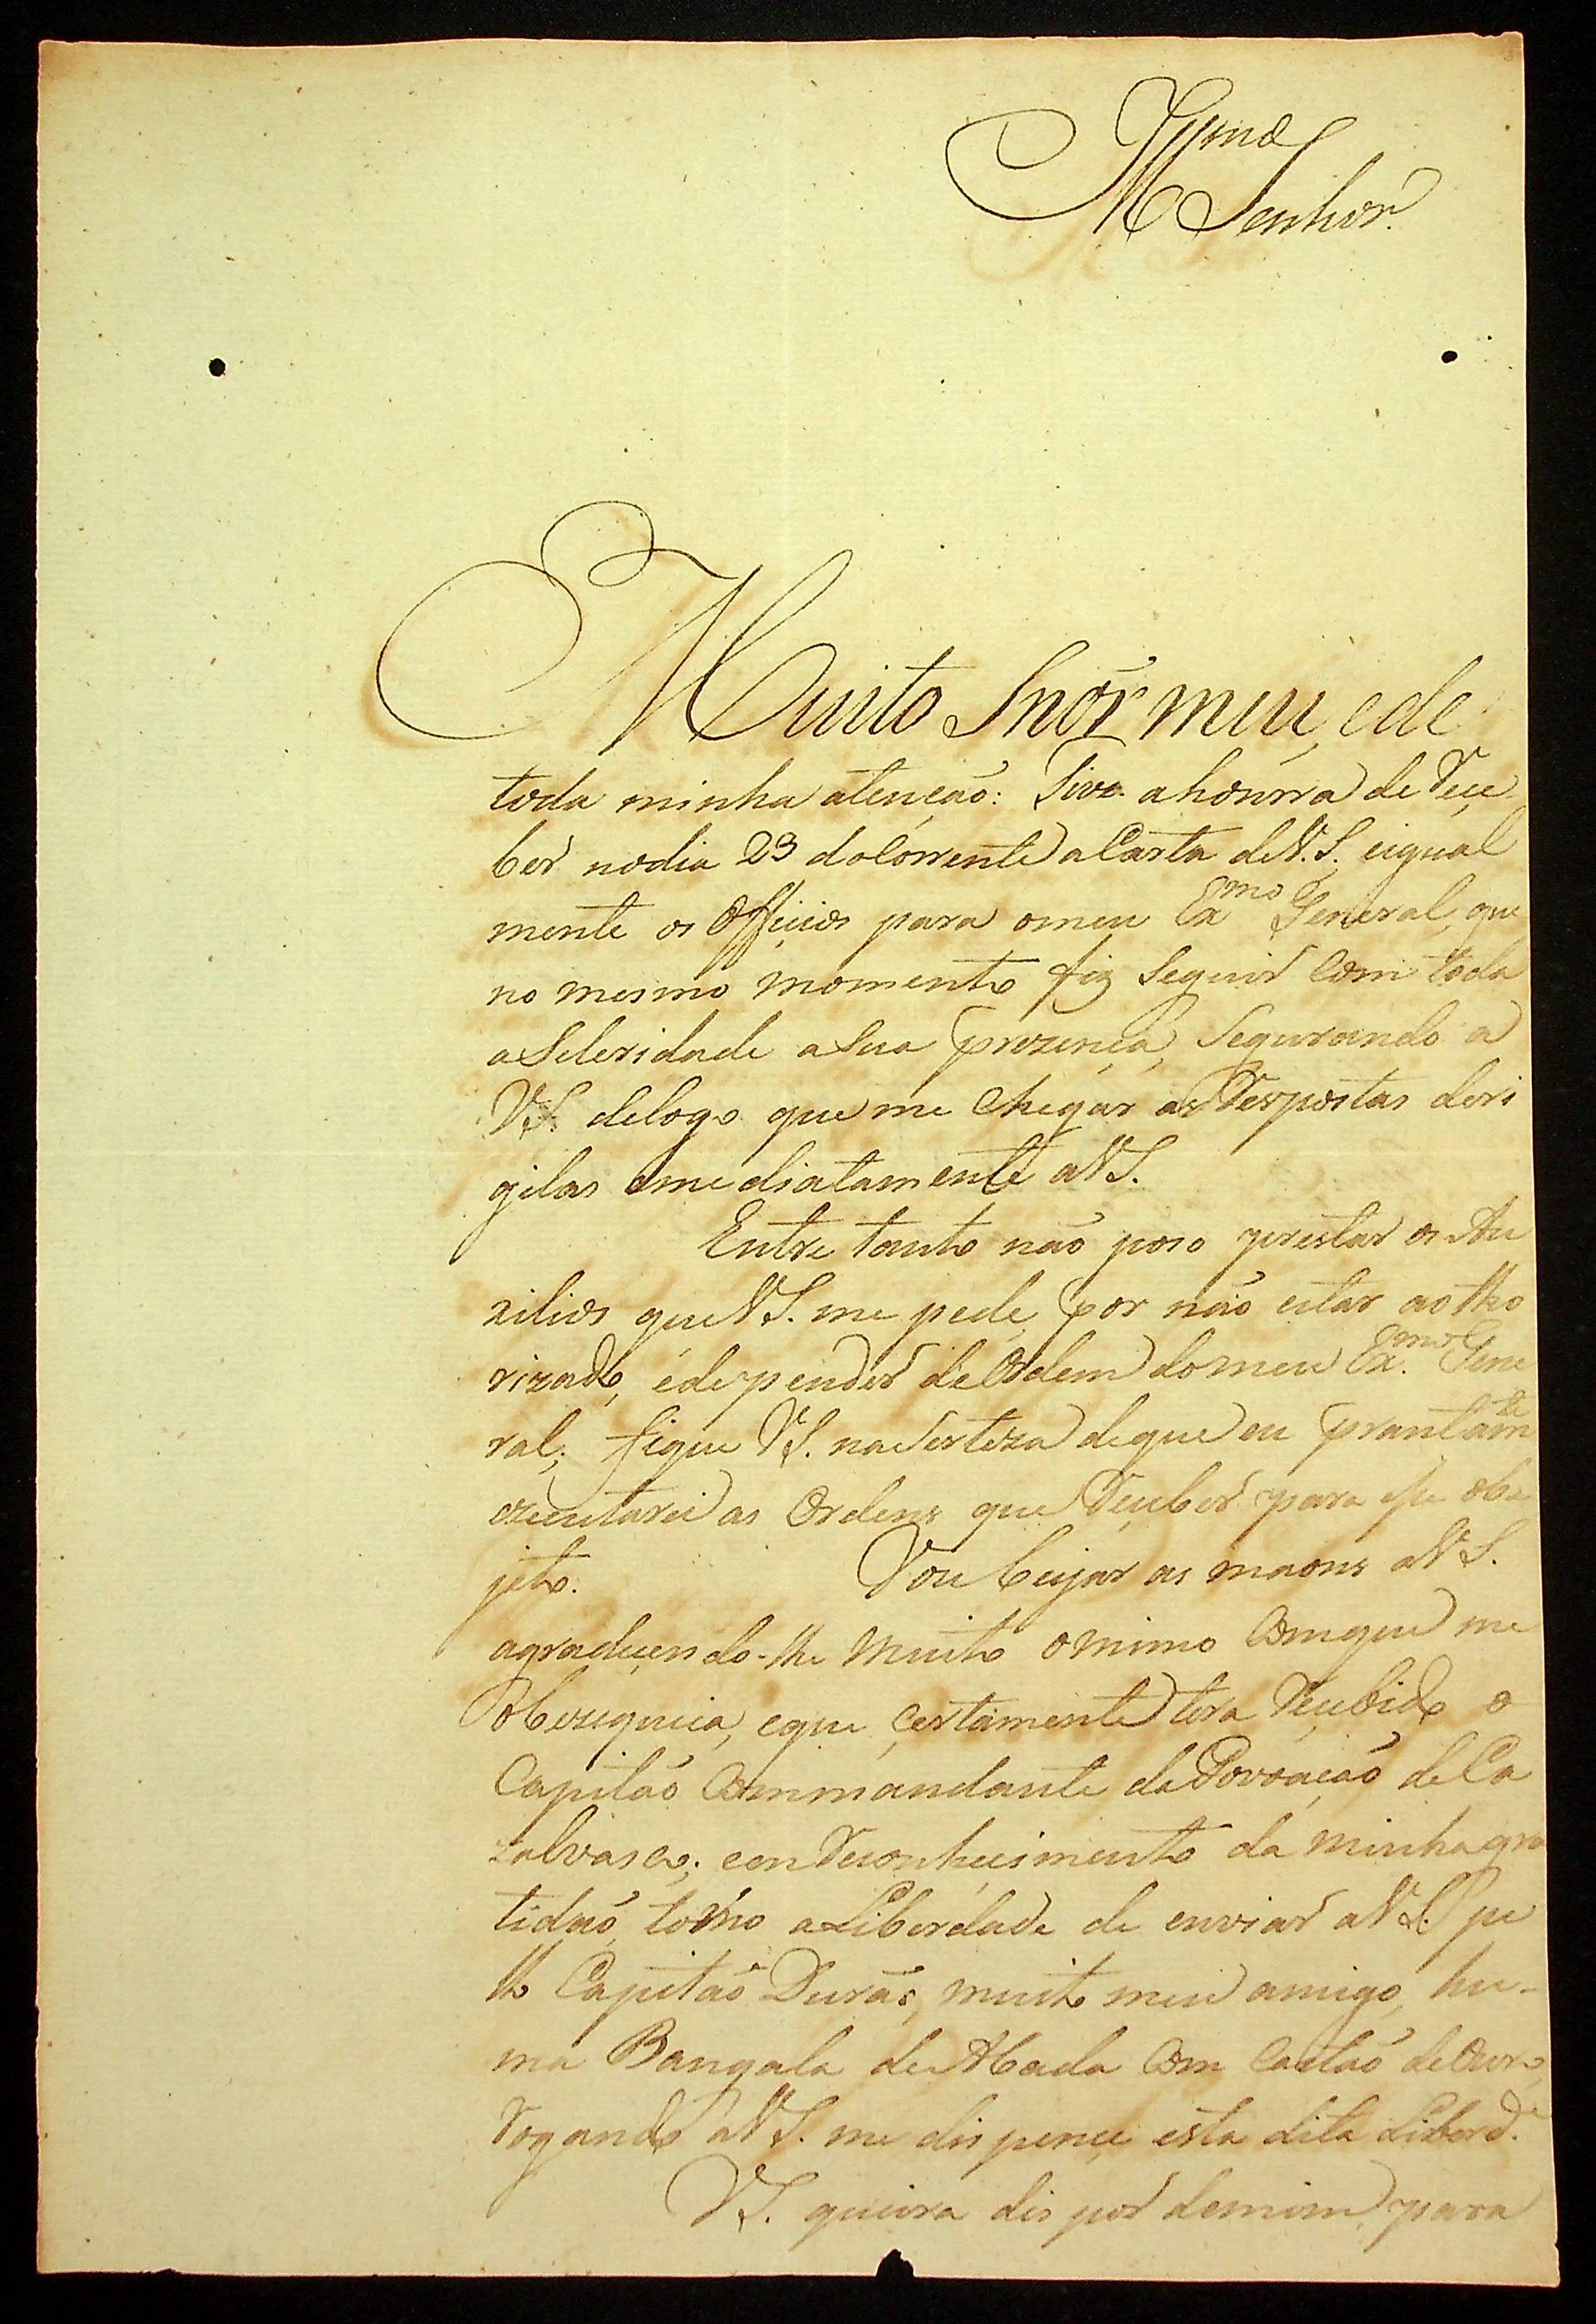 Illmo
Senhor
Muito Snõr meu, e de
toda minha atenção: Tive a hônrra de Reçe
ber no dia 23 do Córrente a Carta de V.S. e igual
mente os Offiçios para o meu Exmo General, que
no mesmo momento fiz Seguir Com toda
a Seleridade a Sua prezença, Segurando a
V.S. de logo que me Chegar as Respostas deri
gilas Imediatamente a V.S.
Entre tanto não poso prestar os Au
xilios que V.S. me pede, por não estar aotho
rizado, e depender de Ordem do meu Exmo Gene
ral; fique V.S. na Serteza de que eu prontamte
ezecutarei as Ordens que Reçeber para esse obe
jeto. Vou beijar as maons a V.S.
agradeçendo-lhe Muito o mimo Com que me
Obezequeia, e que çertamente tera Reçebido o
Capitão Commandante da Povoação de Ca
zalvasco; e em Reconheçimento da minha gra
tidaõ, tomo a Liberdade de enviar a V.S. pe
llo Capitão Durão, muito meu amigo, hu-
ma Bangala de Abada Com Castão de Ouro,
Rogando a V.S. me dispençe esta dita Liberde.
V.S. queira dis por de mim, para